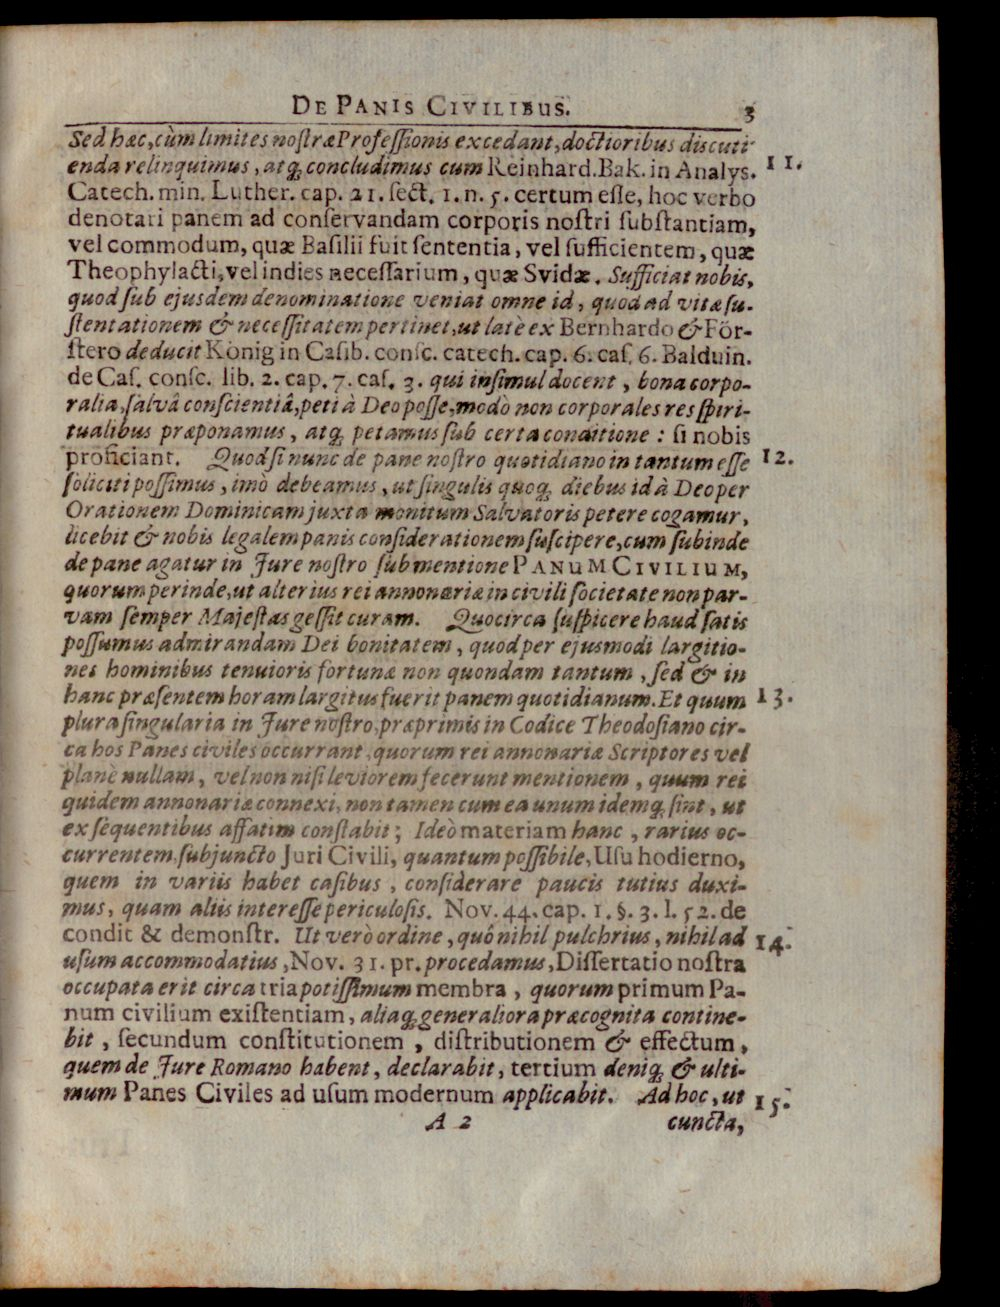 DE PANIS CIVILIBUS. 3
Sed hæc, cùm limites nostræ Professionis excedant, doctioribus discuti-
enda relinquimus, atq; concludimus cum Reinhard. Bak. in Analys. 11.
Catech. min. Luther. cap. 21. sect. 1. n. 5. certum esse, hoc verbo
denotari panem ad conservandam corporis nostri substantiam,
vel commodum, quæ Basilii fuit sententia, vel sufficientem, quæ
Theophylacti, vel indies necessarium, quæ Svidæ. Sufficiat nobis,
quod sub ejusdem denominatione veniat omne id, quod ad vitæ su-
stentationem & necessitatem pertinet, ut latè ex Bernhardo & För-
stero deducit König in Casib. consc. catech. cap. 6. cas. 6. Balduin.
de Cas. consc. lib. 2. cap. 7. cas. 3. qui insimul docent, bona corpo-
ralia, salvâ conscientiâ, peti à Deo posse, modò non corporales res spiri-
tualibus præponamus, atq; petamus sub certa conditione: si nobis
proficiant. Quod si nunc de pane nostro quotidiano in tantum esse 12.
soliciti possimus, imò debeamus, ut singulis quoq; diebus id à Deo per
Orationem Dominicam juxta monitum Salvatoris petere cogamur,
licebit & nobis legalem panis considerationem suscipere, cum subinde
de pane agatur in Jure nostro sub mentione PANUM CIVILIUM,
quorum perinde, ut alterius rei annonariæ in civili societate non par-
vam semper Majestas gessit curam. Quocirca suspicere haud satis
possumus admirandam Dei bonitatem, quod per ejusmodi largitio-
nes hominibus tenuioris fortunæ non quondam tantum, sed & in
hanc præsentem horam largitus fuerit panem quotidianum. Et quum 13.
plura singularia in Jure nostro, præprimis in Codice Theodosiano cir-
ca hos Panes civiles occurrant, quorum rei annonariæ Scriptores vel
planè nullam, vel non nisi leviorem fecerunt mentionem, quum rei
quidem annonariæ connexi, non tamen cum ea unum idemq; sint, ut
ex sequentibus affatim constabit; Ideò materiam hanc, rarius oc-
currentem, subjuncto Juri Civili, quantum possibile, Usu hodierno,
quem in variis habet casibus, considerare paucis tutius duxi-
mus, quam aliis interesse periculosis. Nov. 44. cap. 1. §. 3. l. 52. de
condit & demonstr. Ut verò ordine, quô nihil pulchrius, nihil ad 14.
usum accommodatius, Nov. 31. pr. procedamus, Dissertatio nostra
occupata erit circa tria potissimum membra, quorum primum Pa-
num civilium existentiam, aliaq; generaliora præcognita contine-
bit, secundum constitutionem, distributionem & effectum,
quem de Jure Romano habent, declarabit, tertium deniq; & ulti-
mum Panes Civiles ad usum modernum applicabit. Ad hoc, ut 15.
A 2 cuncta,